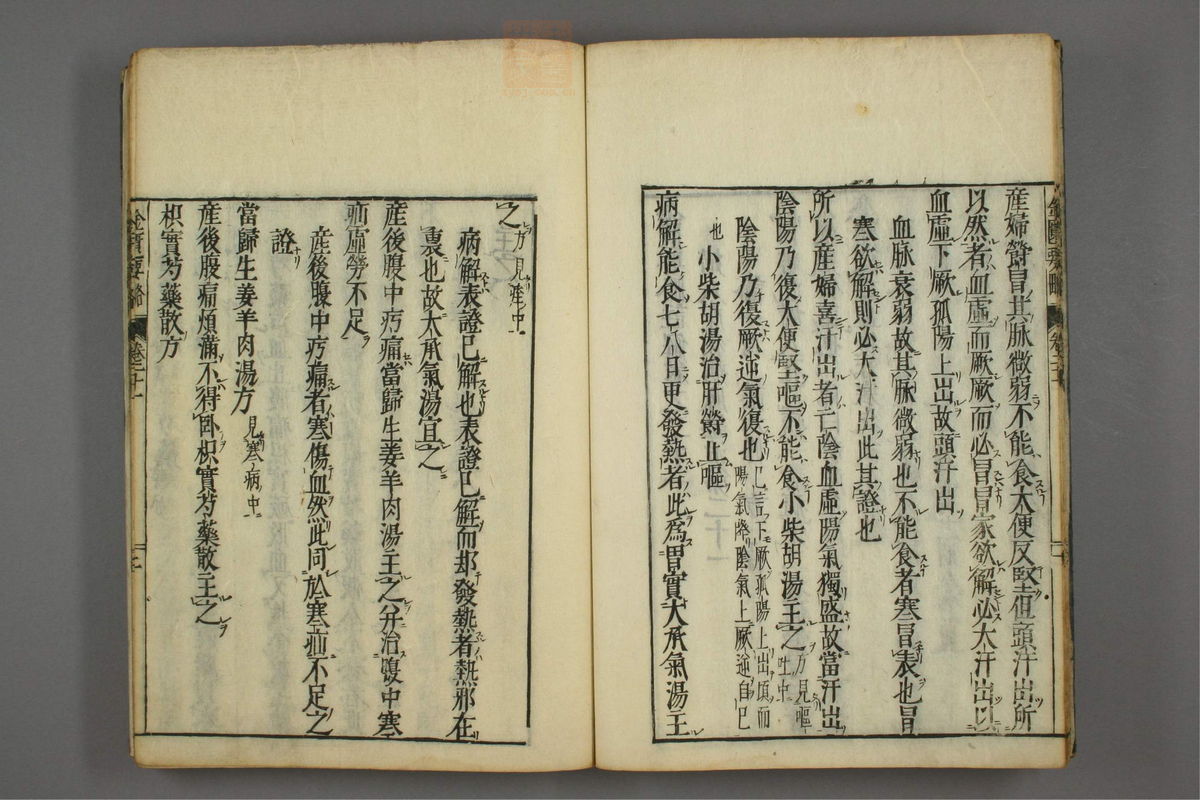 産婦欝冒其脉微弱不能食大便反堅但頭汗出所
以然者血虛而厥厥而必冒冒家欲解必大汗出以
血虛下厥孤陽上出故頭汗出
血脉衰弱故其脉微弱也不能食者寒冒表也冒
寒欲解則必大汗出此其證也
所以産婦喜汗出者亡陰血虛陽氣獨盛故當汗出
陰陽乃復大便堅嘔不能食小柴胡湯主之方見嘔吐中
陰陽乃復厥逆氣復也已言下厥孤陽上出頃而陽氣降陰氣上厥逆自已
也小柴胡湯治肝欝止嘔
病解能食七八日更發熱者此爲胃實大承氣湯主
之方見痓中
病解表證已解也表證已解而却發熱者熱邪在
裏也故大承氣湯宜之
産後腹中㽲痛當歸生姜羊肉湯主之并治腹中寒
疝虛勞不足
産後腹中㽲痛者寒傷血然此同於寒疝不足之
證
當歸生姜羊肉湯方見寒病中
産後腹痛煩滿不得卧枳實芍藥散主之
枳實芍藥散方